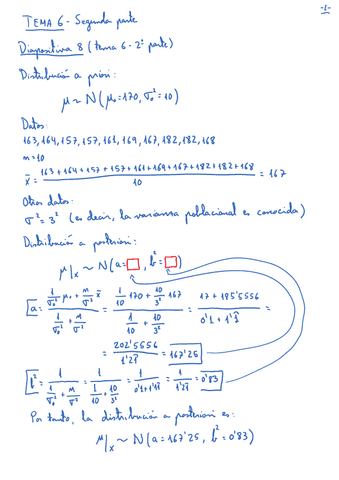 -1-
TEMA 6 - Segunda parte
Diapositiva 8 (tema 6 - 2ª parte)
Distribución a priori:
μ ~ N(μ₀=170, σ₀²=10)
Datos:
163, 164, 157, 157, 161, 169, 167, 182, 182, 168
n=10
x̄ = (163+164+157+157+161+169+167+182+182+168)/10 = 167
Otros datos:
σ²=3² (es decir, la varianza poblacional es conocida)
Distribución a posteriori:
μ|x ~ N(a=□, b²=□)
a = (1/σ₀² μ₀ + n/σ² x̄)/(1/σ₀² + n/σ²) = (1/10 170 + 10/3² 167)/(1/10 + 10/3²) = (17 + 185'5556)/(0'1 + 1'1̂) =
= 202'5556/1'21̂ = 167'25
b² = 1/(1/σ₀² + n/σ²) = 1/(1/10 + 10/3²) = 1/(0'1+1'1̂) = 1/1'21̂ = 0'83
Por tanto, la distribución a posteriori es:
μ|x ~ N(a=167'25, b²=0'83)